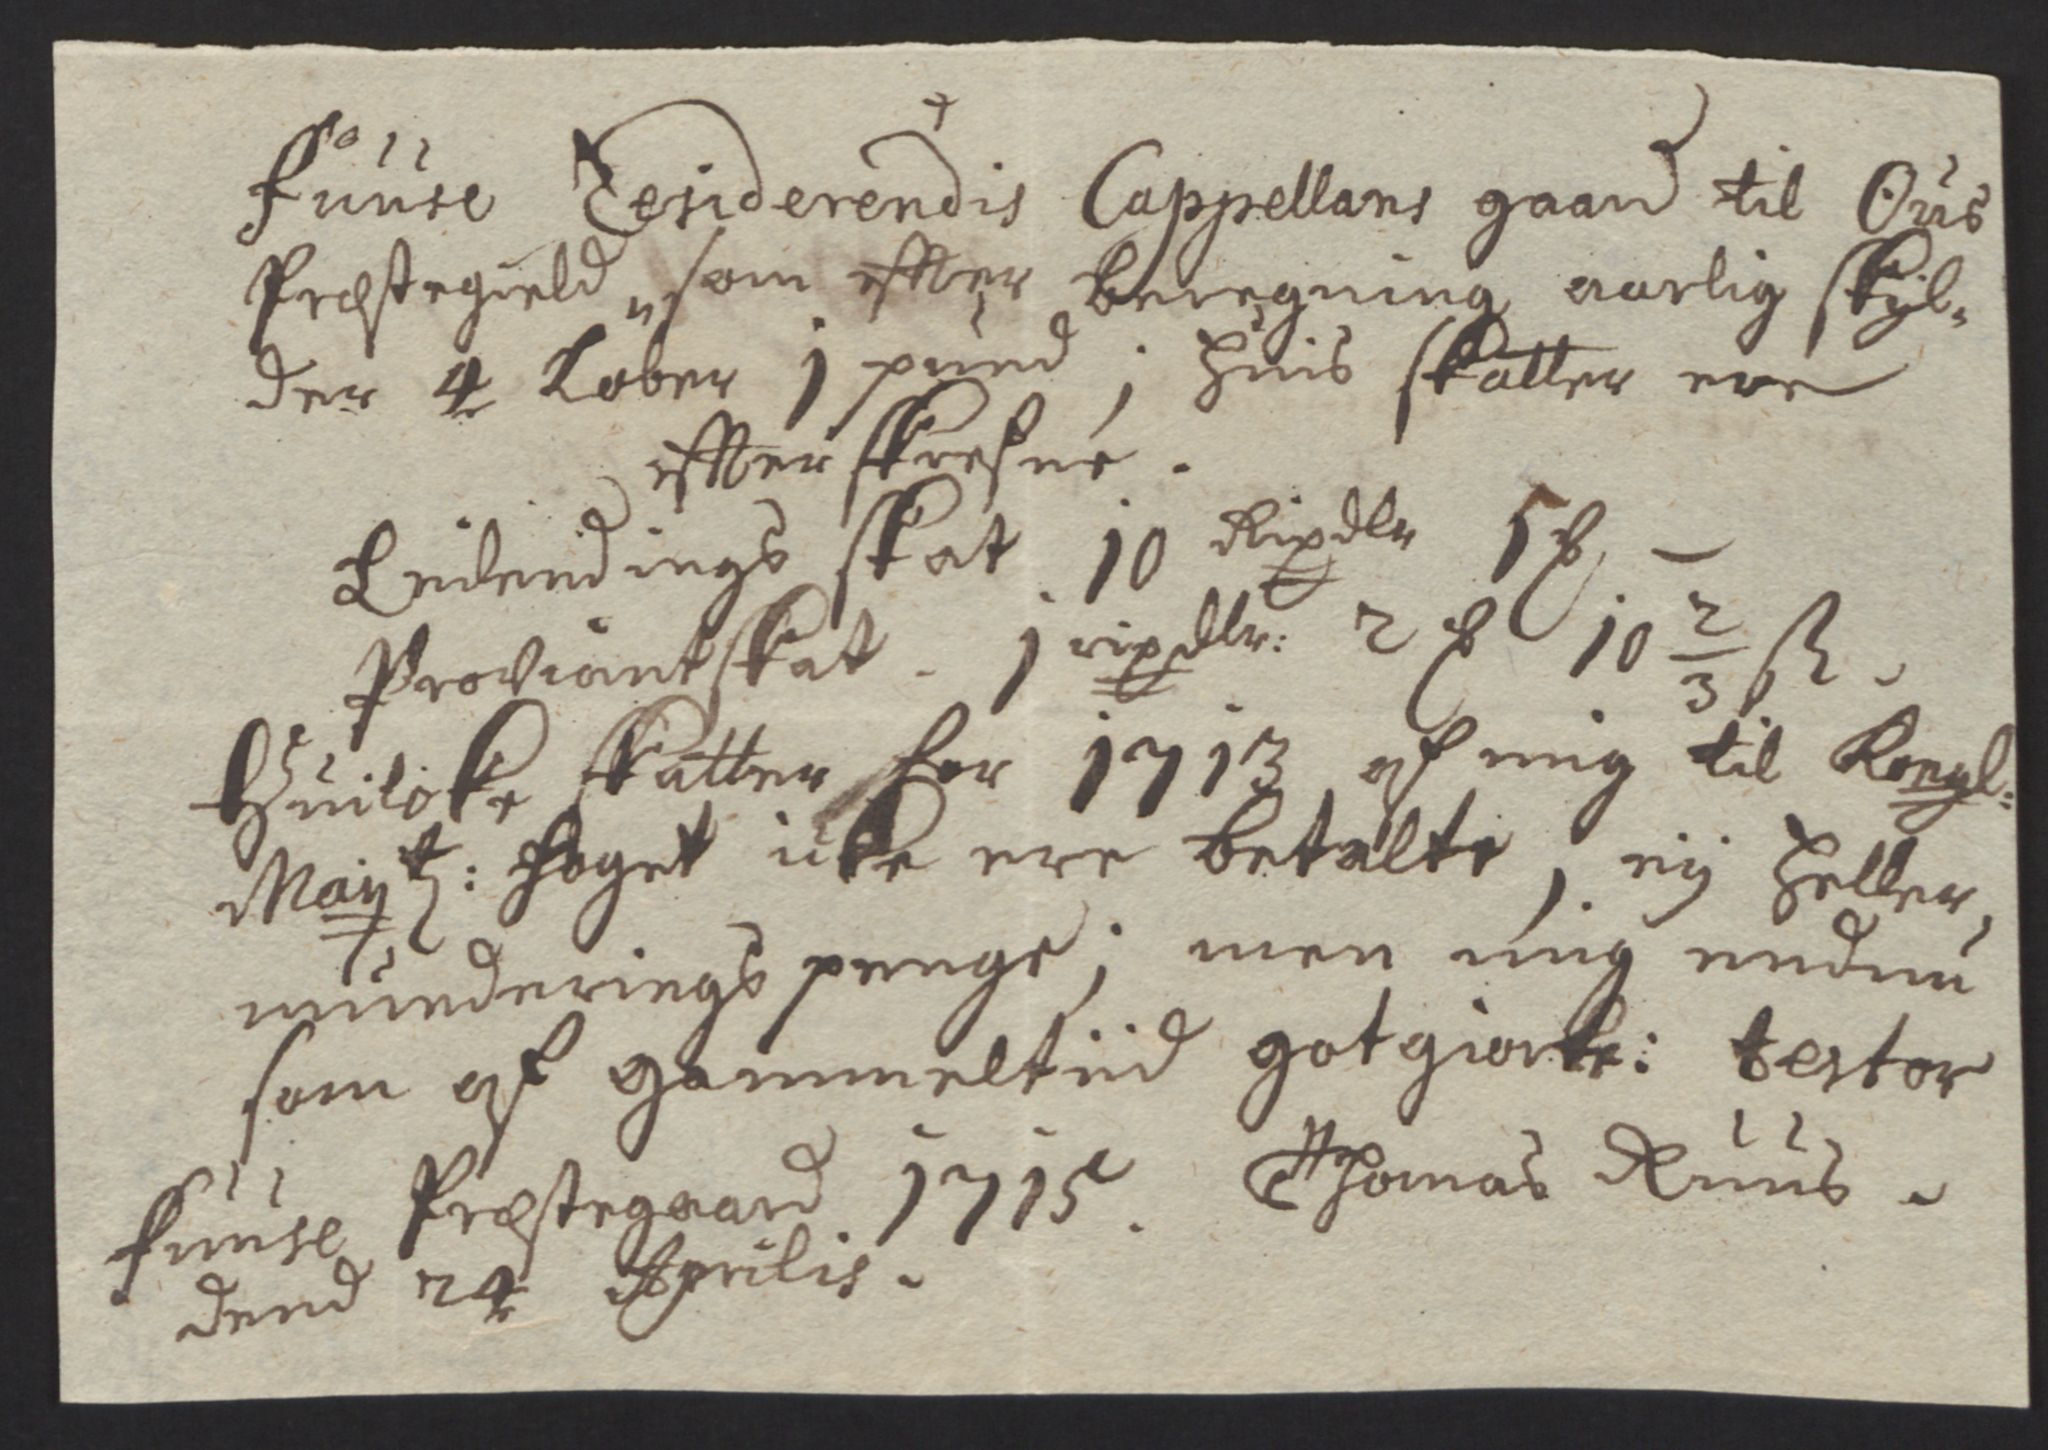 Fuuse Residerendis Cappellans gaard til Ous
Præstegield, som effter beregning aarlig skyl-
der 4 Løber 1 pund; huis skatter ere
effterskrefne.
Leilendings skat 10 Rixdlr 5 ß –
Proviantskat. 1 rixdlr: 2 ß 10 2/3 ß.
Huilcke skatter for 1713 af mig til Kongl:
Mayts: foget icke ere betalte, eij heller
munderings penge; men mig endnu
som af gammeltiid gotgiorte: testor
Fuuse Præstegaard 1715. Thomas Ruus.
dend 24 Aprilis.